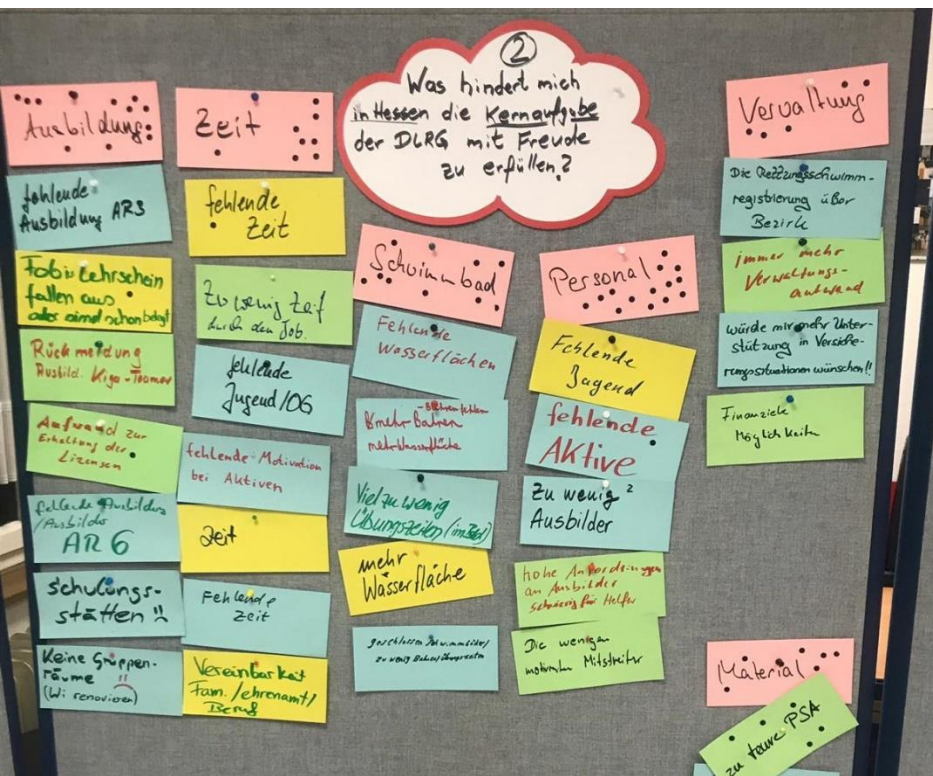 2
Was hindert mich
in Hessen die Kernaufgabe
der DLRG mit Freude
zu erfüllen?
Ausbildung
fehlende
Ausbildung AR3
Fobiv Lehrschein
fallen aus
oder sind schon belegt
Rückmeldung
Ausbild. Kiga-Teamer
Aufwand zur
Erhaltung der
Lizensen
fehlende Ausbildung
/Ausbilder
AR 6
Schulungs-
stätten!!
Keine Gruppen-
räume !!
(Wi renovieren)
Zeit
fehlende
Zeit
Zu wenig Zeit
durch den Job.
fehlende
Jugend/OG
fehlende Motivation
bei Aktiven
Zeit
Fehlende
Zeit
Vereinbarkeit
Fam./ehrenamt/
Beruf
Schwimmbad
Fehlende
Wasserflächen
mehr Bahnen
mehr Wasserfläche
Viel zu wenig
Übungszeiten (im Bad)
mehr
Wasserfläche
geschlossen Schwimmbäder/
zu wenig Bahnen/Übungszeiten
Personal
Fehlende
Jugend
fehlende
AKtive
Zu wenig ²
Ausbilder
hohe Anforderungen
an Ausbilder
schwierig für Helfer
Die wenigen
motivierten Mitstreiter
Verwaltung
Die Rettungsschwimm-
registrierung über
Bezirk
immer mehr
Verwaltungs-
aufwand
würde mir mehr Unter-
stützung in Versiche-
rungssituationen wünschen!!
Finanziele
Möglichkeiten
Material
zu teure PSA